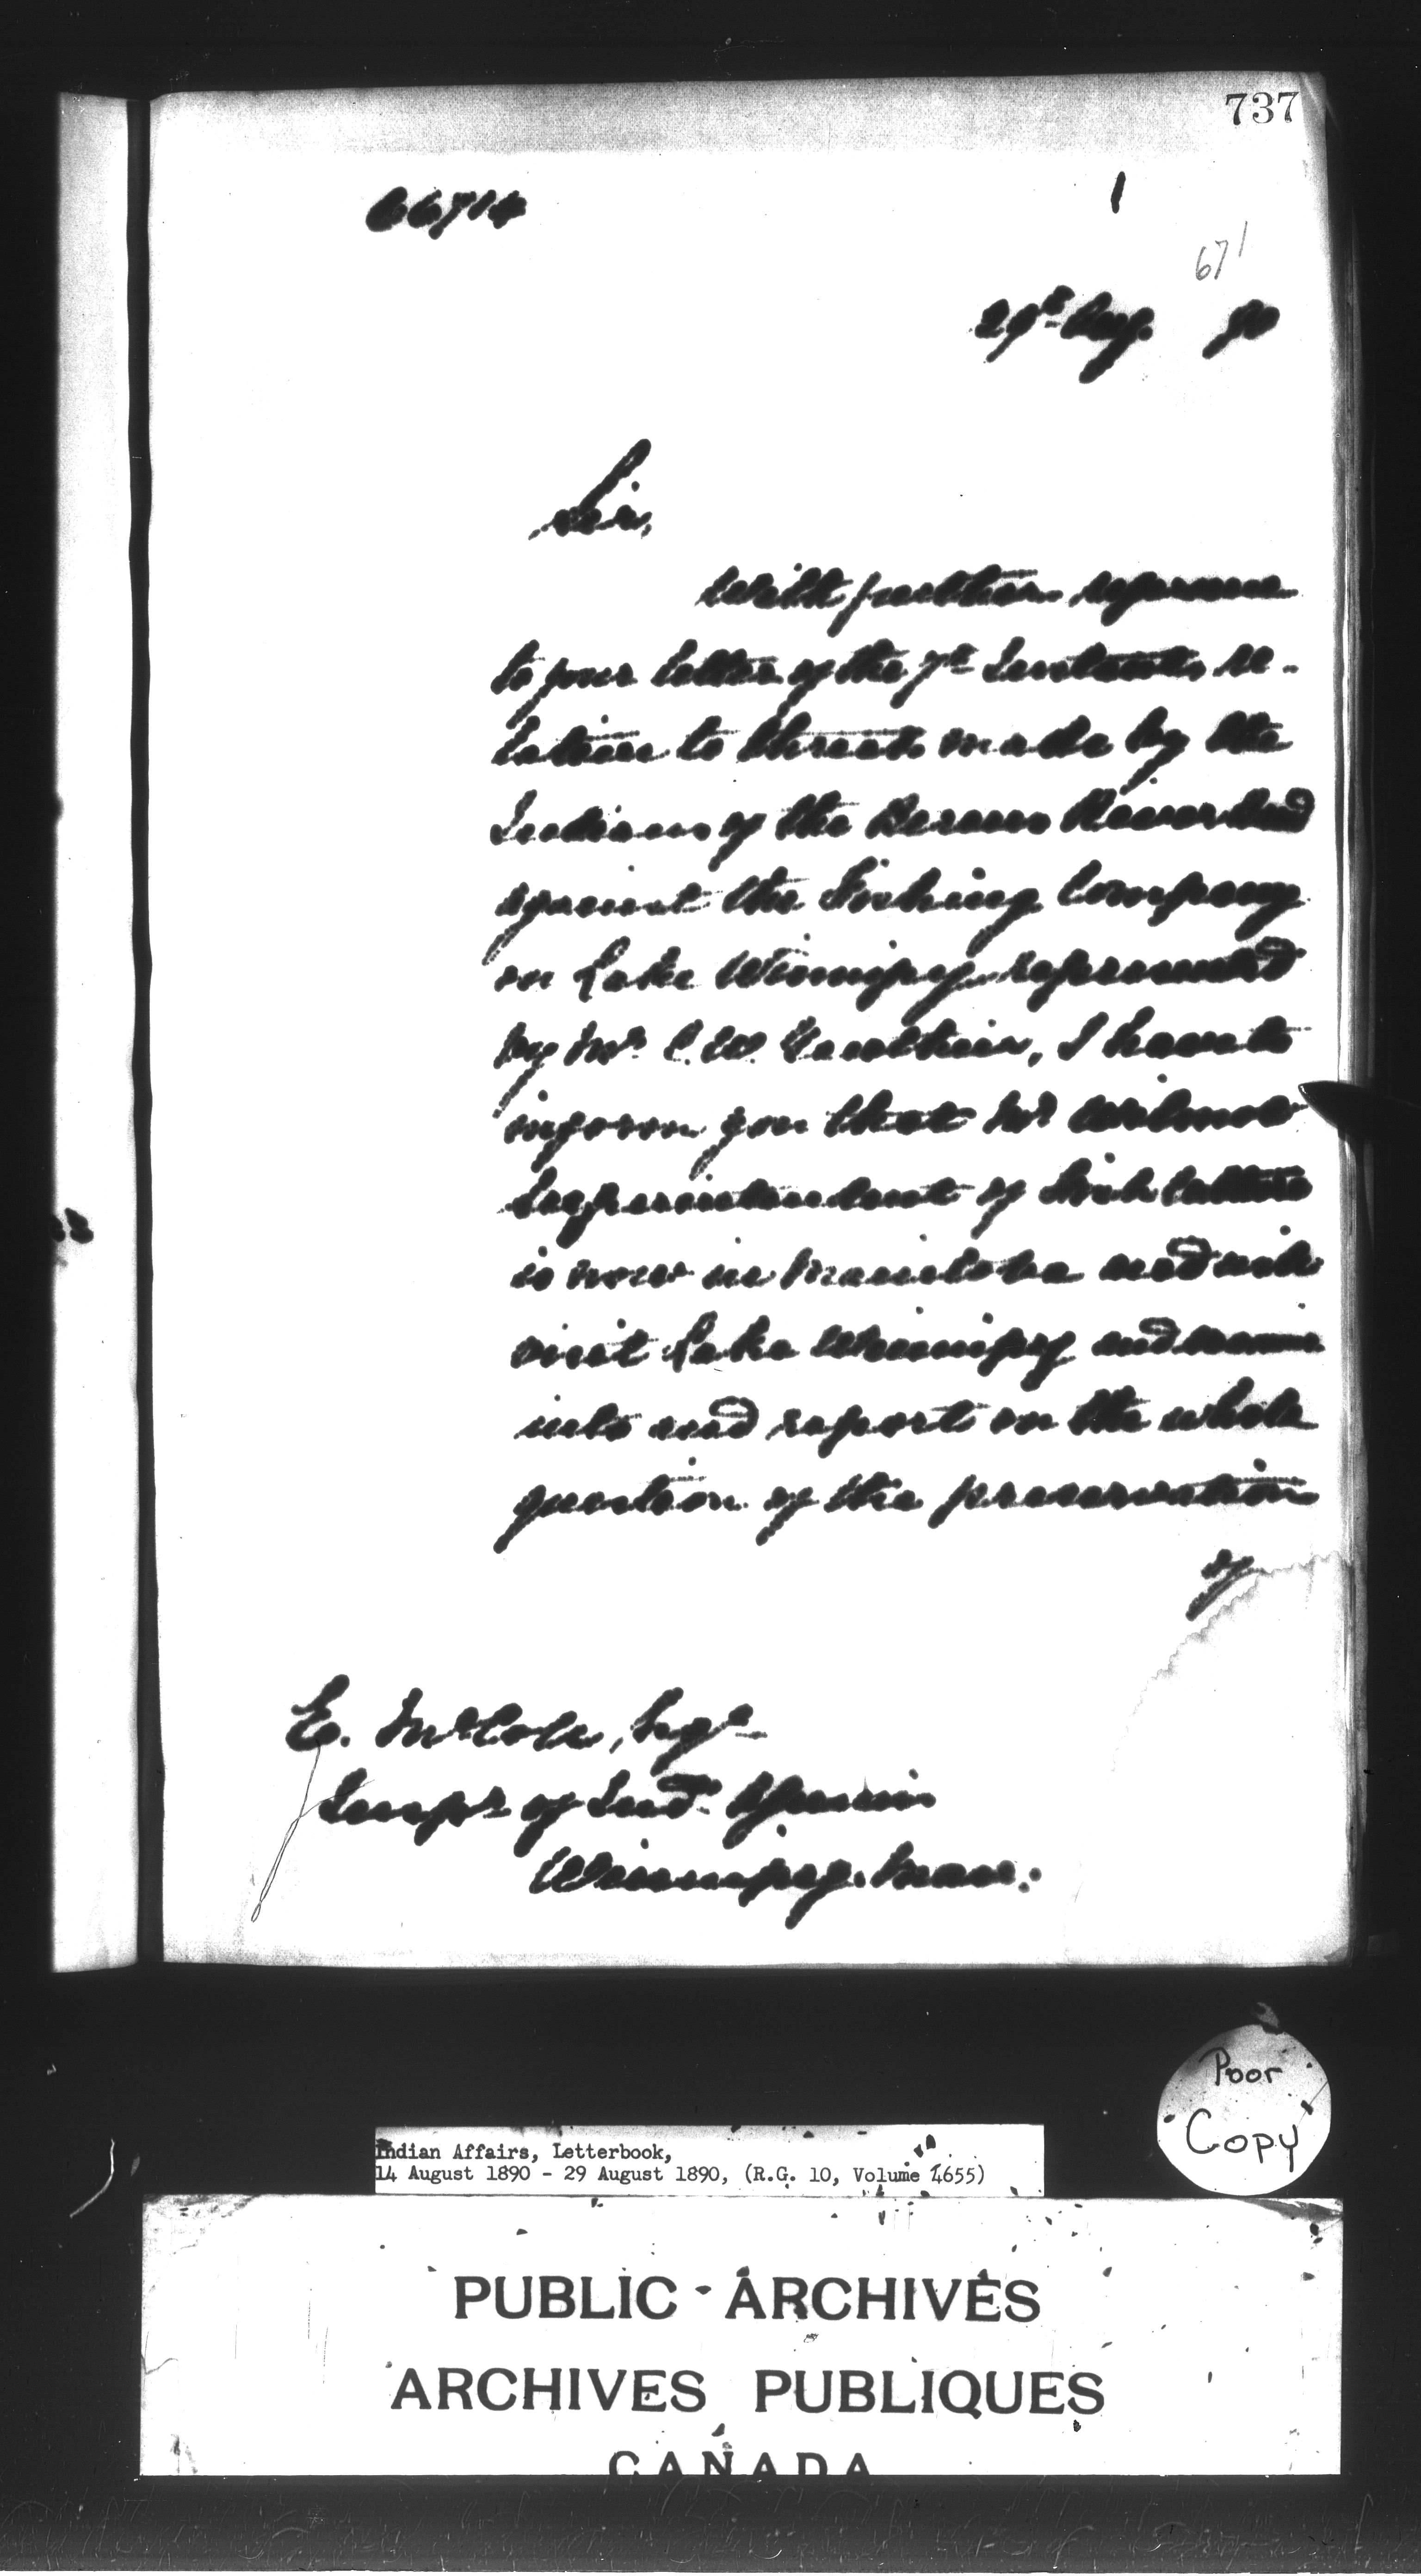 737
66714
1
671
29th Aug. 90
Sir,
With further reference
to your letter of the 7th Instant, re-
lative to threats made by the
Indians of the Berens River Band
against the Fishing Company
on Lake Winnipeg represented
by Mr. C. W. Gauthier, I have to
inform you that Mr Wilmot
Superintendent of Fish Culture
is now in Manitoba and will
visit Lake Winnipeg and
into and report on the whole
question of the preservation
of
E. McColl, Esqr
Supt of Ind. Agencies
Winnipeg. Man:
Poor
"Copy"
Indian Affairs, Letterbook,
14 August 1890 - 29 August 1890, (R.G. 10, Volume 4655)
PUBLIC ARCHIVES
ARCHIVES PUBLIQUES
CANADA